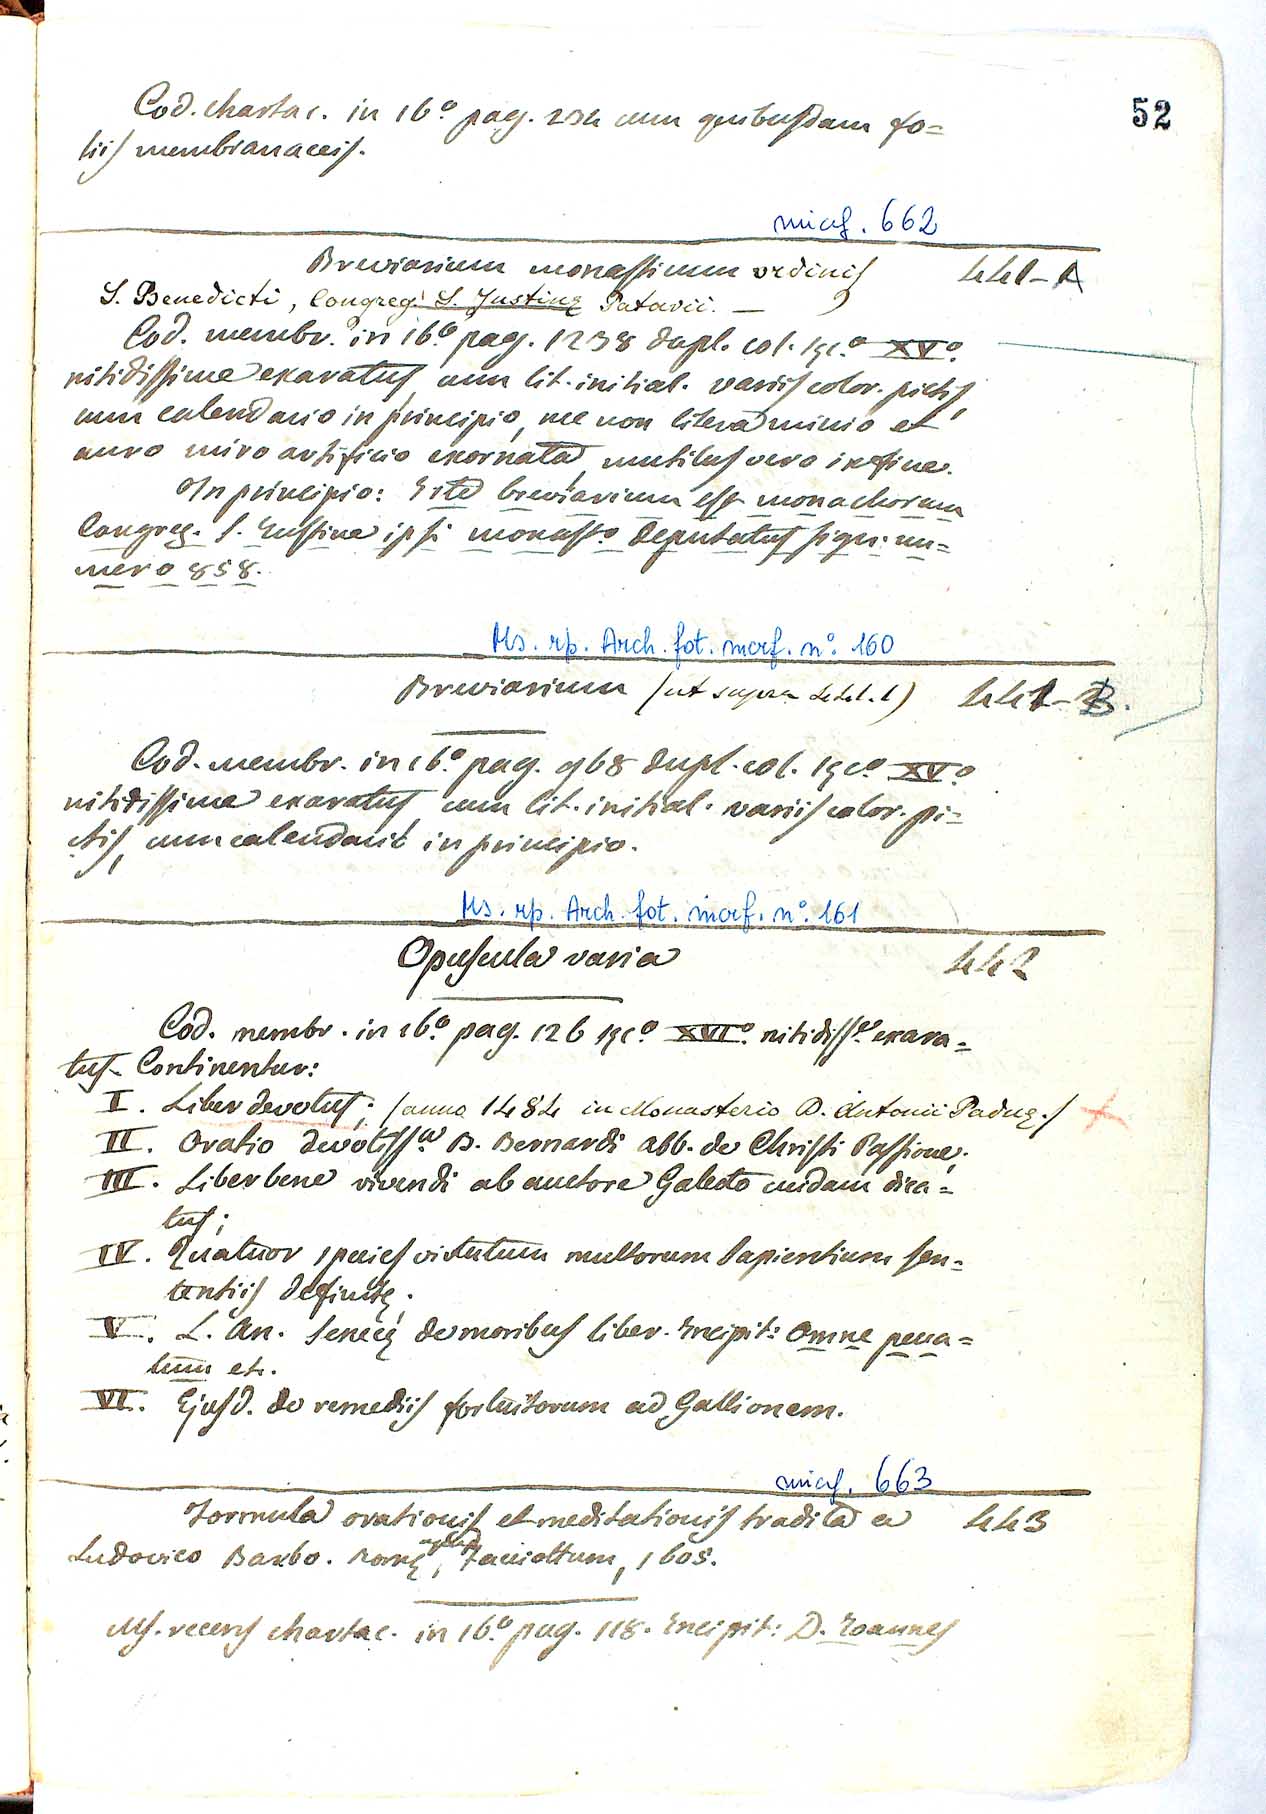 52
Cod. chartac. in 16.º pag. 234 cum quibusdam fo=
liis membranaceis.
micrf. 662
Breviarium monasticum ordinis 441-A
S. Benedicti, Congreg. S. Justinę Patavii. —
Cod. membr. in 16.º pag. 1238 dupl. col. sęc.º XVº.
nitidissime exaratus, cum lit. initial. variis color. pictis,
cum calendario in principio, nec non litera minio et
auro miro artificio exornata, mutilus vero in fine.
In principio: Iste breviarium est monachorum
Congreg. S. Iustine ipsi monast.º deputatus sign. nu=
mero 858.
Ms. rip. Arch. fot. micrf. nº. 160
Breviarium (ut supra 441.1) 441-B.
Cod. membr. in 16.º pag. 968 dupl. col. sęcº XVº
nitidissime exaratus, cum lit. initial. variis color. pi=
ctis, cum calendario in principio.
Ms. rip. Arch. fot. micrf. nº. 161
Opuscula varia 442
Cod. membr. in 16.º pag. 126 sęcº XVIº. nitidissº. exara=
tus. Continentur:
I. Liber devotus; (anno 1484 in Monasterio D. Antonii Paduę.)
II. Oratio devotissª. B. Bernardi abb. de Christi Passione;
III. Liber bene vivendi ab auctore Galeto cuidam dica=
tus;
IV. Quatuor species virtutum multorum Sapientium sen=
tentiis definitę.
V. L. An. Senecę de moribus liber. Incipit: Omne pecca=
tum etc.
VI. Ejusd. de remediis fortuitorum ad Gallionem.
micrf. 663
Formula orationis et meditationis tradita a 443
Ludovico Barbo. Romę, apud Facciottum, 1605.
Ms. recens chartac. in 16.º pag. 118. Incipit: D. Ioannes